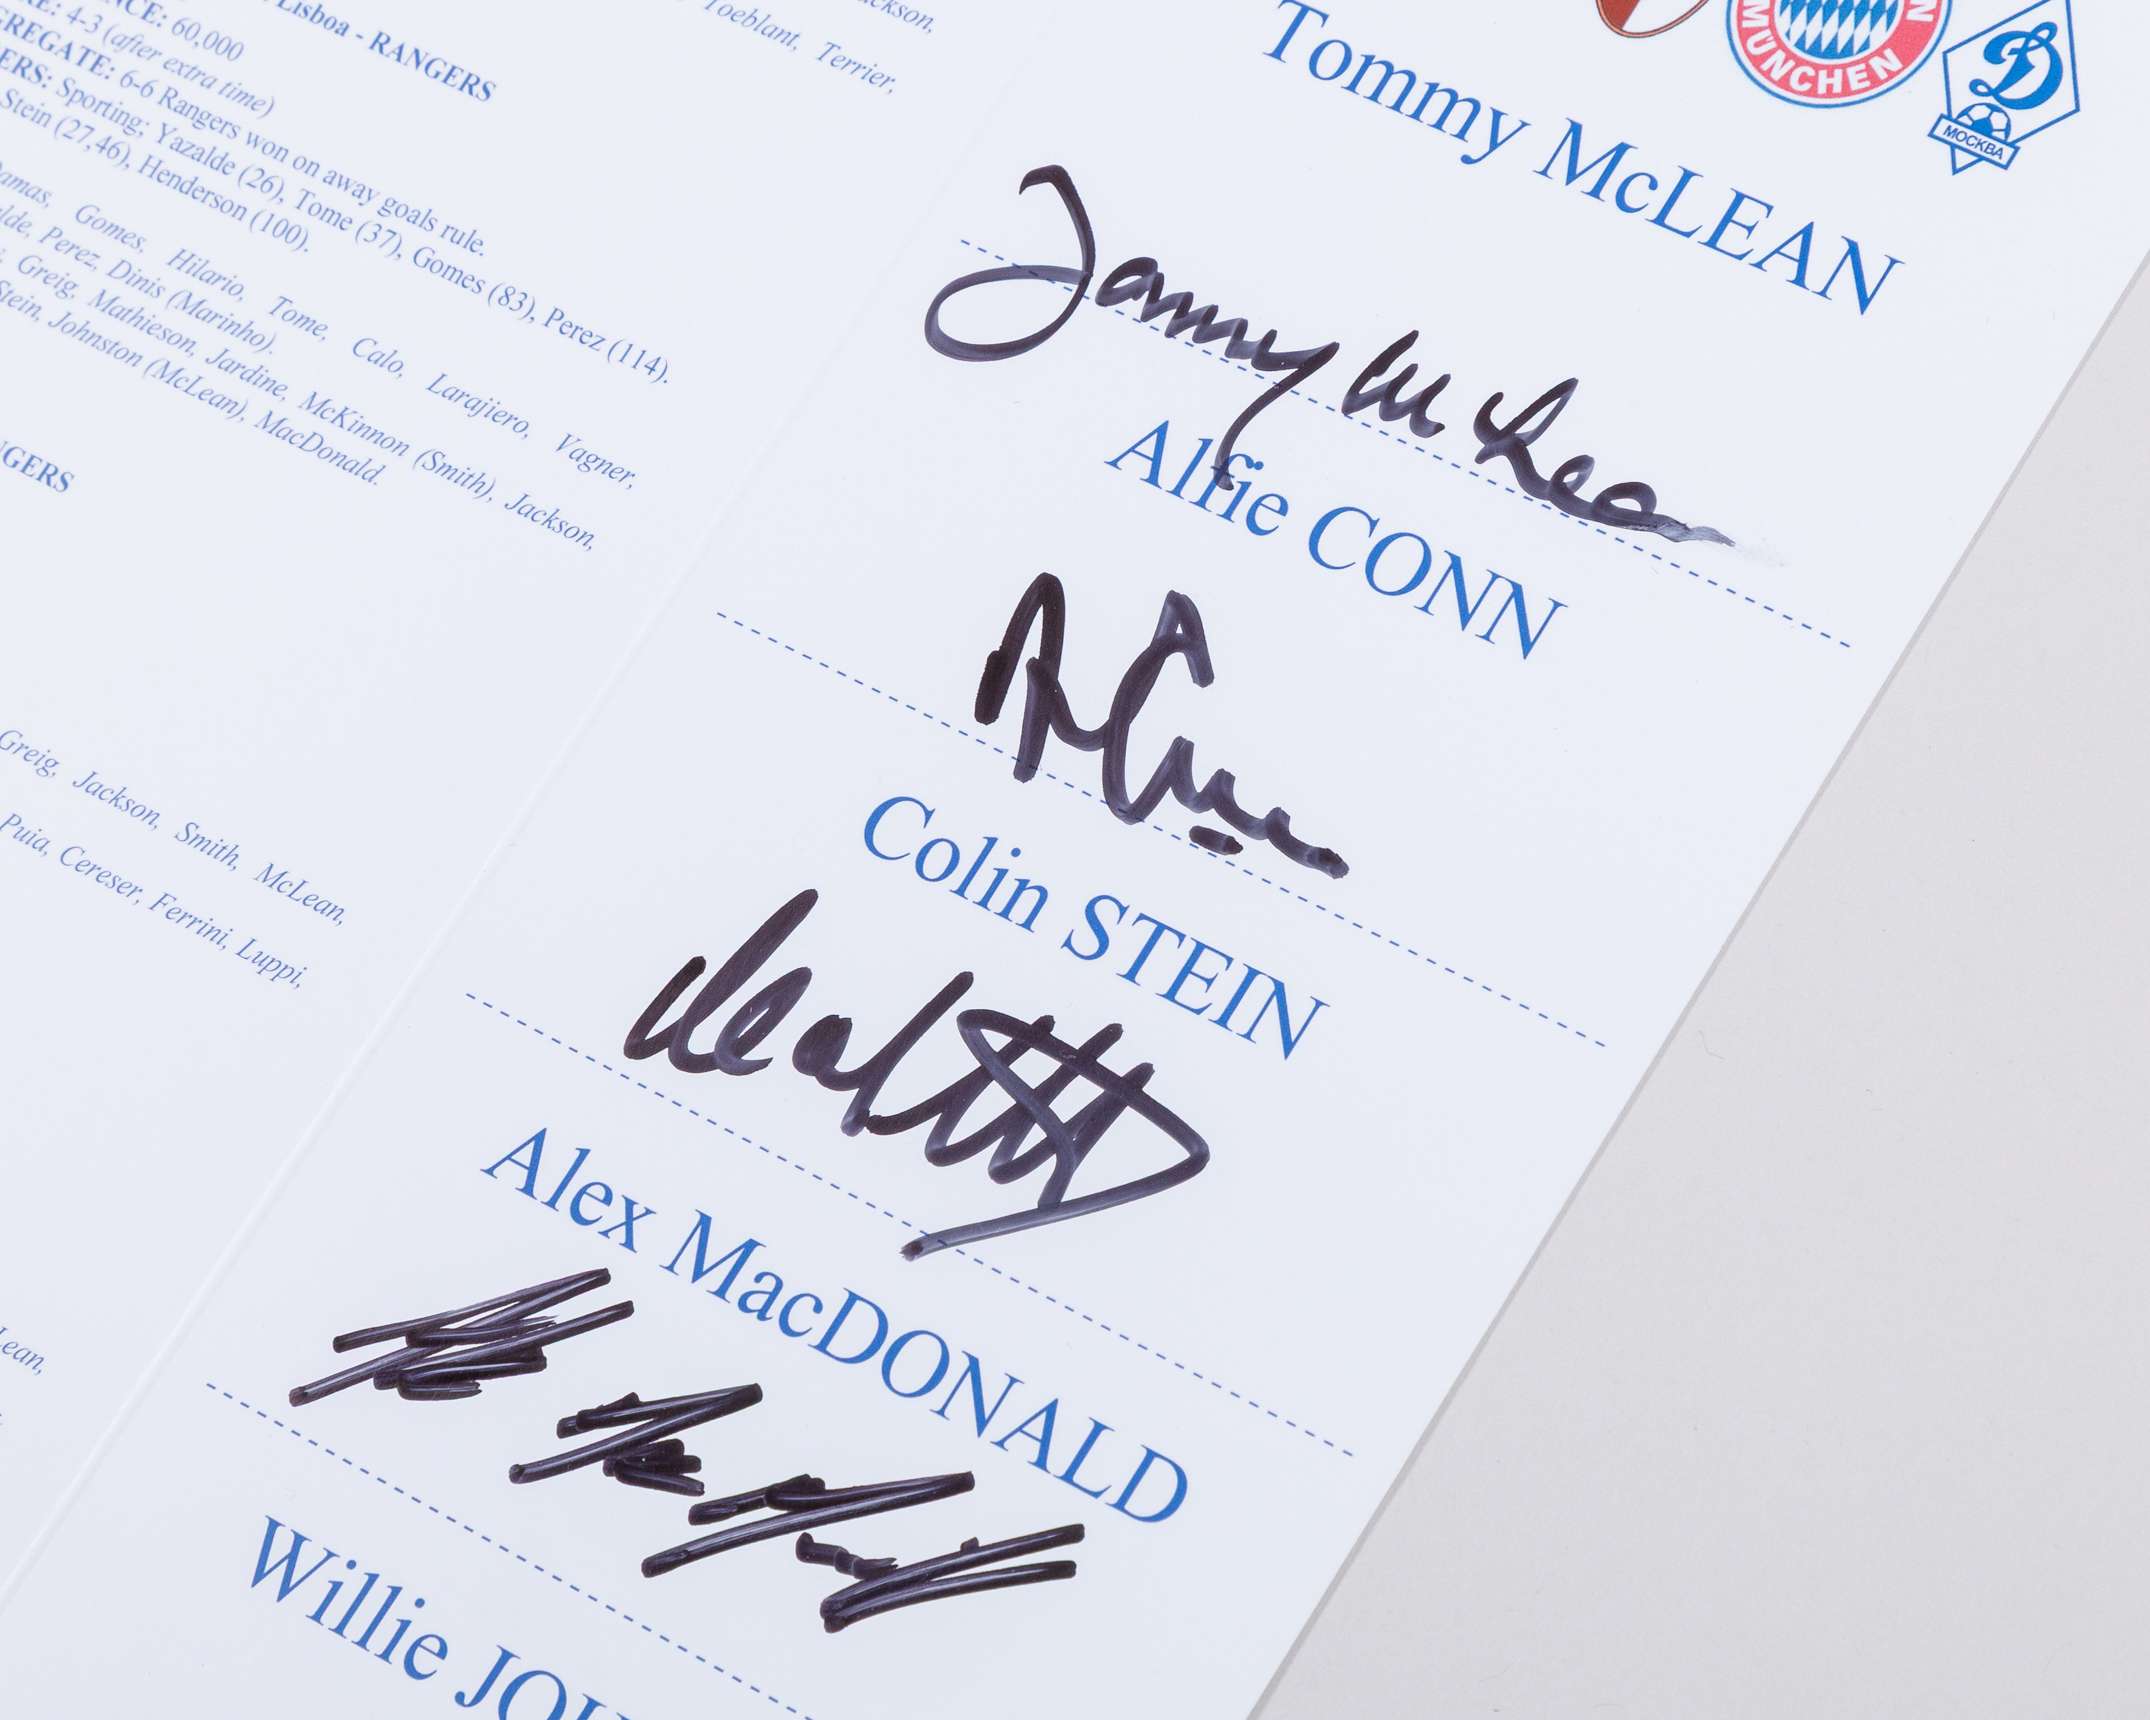 Lisboa - RANGERS
NCE: 60,000
RE: 4-3 (after extra time)
GREGATE: 6-6 Rangers won on away goals rule.
ERS: Sporting; Yazalde (26), Tome (37), Gomes (83), Perez (114).
Stein (27,46), Henderson (100).
Damas, Gomes, Hilario, Tome, Calo, Larajiero, Vagner,
alde, Perez, Dinis (Marinho).
Greig, Mathieson, Jardine, McKinnon (Smith), Jackson,
Stein, Johnston (McLean), MacDonald.
GERS
Greig, Jackson, Smith, McLean,
Puia, Cereser, Ferrini, Luppi,
Lean,
ckson,
Toeblant, Terrier,
MÜNCHEN
Д
МОСКВА
Tommy McLEAN
Tommy McLean
Alfie CONN
A Conn
Colin STEIN
Alex MacDONALD
Willie JOH